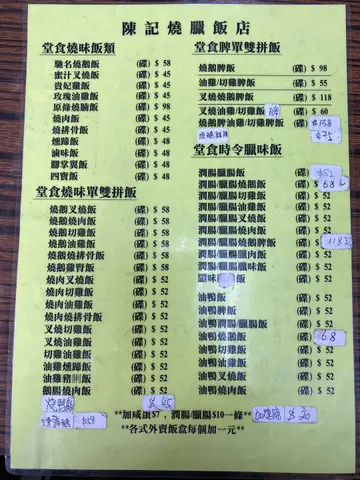 陳記燒臘飯店
堂食燒味飯類
馳名燒鵝飯 (碟) $ 58
蜜汁叉燒飯 (碟) $ 45
貴妃雞飯 (碟) $ 45
玫瑰油雞飯 (碟) $ 45
原條燒腩飯 (碟) $ 98
燒肉飯 (碟) $ 45
燒排骨飯 (碟) $ 45
燻蹄飯 (碟) $ 48
滷味飯 (碟) $ 48
腳掌翼飯 (碟) $ 48
四寶飯 (碟) $ 48
堂食燒味單雙拼飯
燒鵝叉燒飯 (碟) $ 58
燒鵝燒肉飯 (碟) $ 58
燒鵝切雞飯 (碟) $ 58
燒鵝油雞飯 (碟) $ 58
燒鵝燒排骨飯 (碟) $ 58
燒鵝雞腎飯 (碟) $ 58
燒肉叉燒飯 (碟) $ 52
燒肉切雞飯 (碟) $ 52
燒肉油雞飯 (碟) $ 52
燒肉燒排骨飯 (碟) $ 52
叉燒切雞飯 (碟) $ 52
叉燒油雞飯 (碟) $ 52
切雞油雞飯 (碟) $ 52
油雞燻蹄飯 (碟) $ 52
油雞豬脷飯 (碟) $ 52
鵝腸燒肉飯 (碟) $ 52
$45
堂食脾單雙拼飯
燒鵝脾飯 (碟) $ 98
油雞/切雞脾飯 (碟) $ 55
叉燒燒鵝脾飯 (碟) $ 118
叉燒油雞/切雞飯 脾 (碟) $ 60
燒鵝脾油雞/切雞脾飯 (碟) $158
$75
堂食時令臘味飯
潤腸臘腸飯 (碟) $52
潤腸/臘腸燒鵝飯 (碟) $68
潤腸/臘腸叉燒飯 (碟) $ 52
潤腸/臘腸切雞飯 (碟) $ 52
潤腸/臘腸油雞飯 (碟) $ 52
潤腸/臘腸燒肉飯 (碟) $ 52
潤腸/臘腸燒鵝脾飯 (碟) $118
潤腸/臘腸臘肉飯 (碟) $ 52
潤腸/臘腸臘味飯 (碟) $ 52
臘味飯 (碟) $ 52
油鴨飯 (碟) $ 52
油鴨脾飯 (碟) $ 52
油鴨潤腸/臘腸飯 (碟) $ 52
油鴨燒鵝飯 (碟) 68
油鴨切雞飯 (碟) $ 52
油鴨油雞飯 (碟) $ 52
油鴨叉燒飯 (碟) $ 52
油鴨燒肉飯 (碟) $ 52
**加咸蛋$7，潤腸/臘腸$10一條**
$30
**各式外賣飯盒每個加一元**